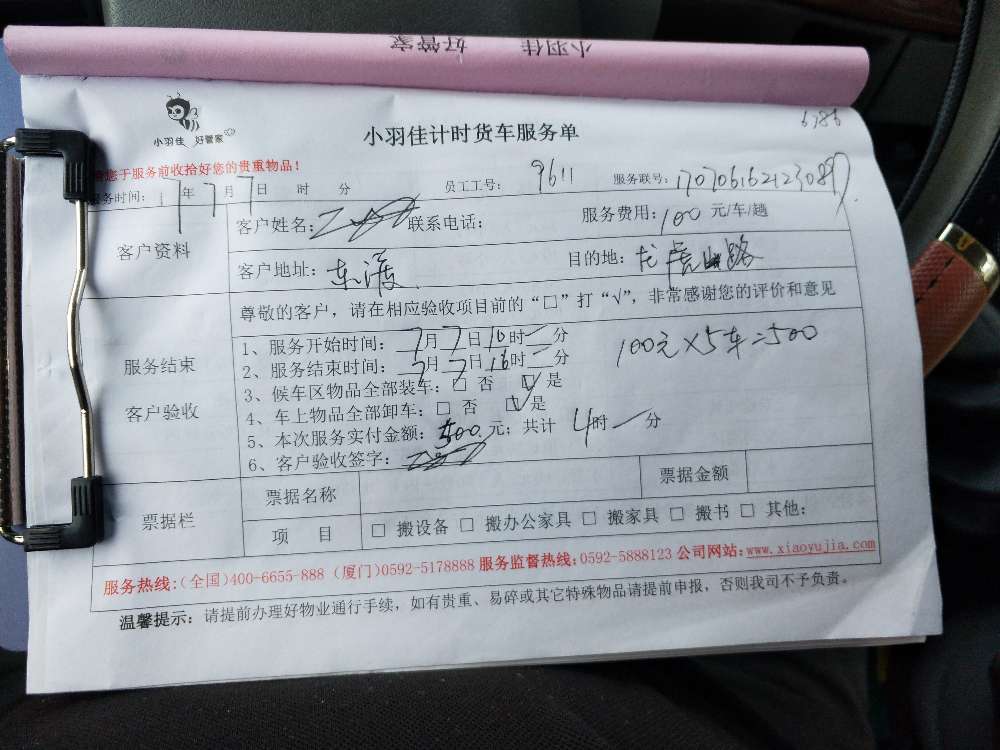 小羽佳 好管家
小羽佳 好管家
小羽佳计时货车服务单
6786
您于服务前收拾好您的贵重物品！
服务时间：17年7月7日 时 分 员工工号：9611 服务联号：170706162123089
客户资料
客户姓名： 联系电话： 服务费用：100元/车/趟
客户地址：东渡 目的地：龙虎山路
尊敬的客户，请在相应验收项目前的“□”打“√”，非常感谢您的评价和意见
服务结束
客户验收
1、服务开始时间：7月7日10时 分
2、服务结束时间：7月7日16时 分
100元×5车=500
3、候车区物品全部装车：□ 否 ☑ 是
4、车上物品全部卸车：□ 否 ☑ 是
5、本次服务实付金额：500元；共计 4时 分
6、客户验收签字：
票据栏
票据名称 票据金额
项 目 □ 搬设备 □ 搬办公家具 □ 搬家具 □ 搬书 □ 其他：
服务热线:(全国)400-6655-888 (厦门)0592-5178888 服务监督热线：0592-5888123 公司网站：www.xiaoyujia.com
温馨提示：请提前办理好物业通行手续，如有贵重、易碎或其它特殊物品请提前申报，否则我司不予负责。